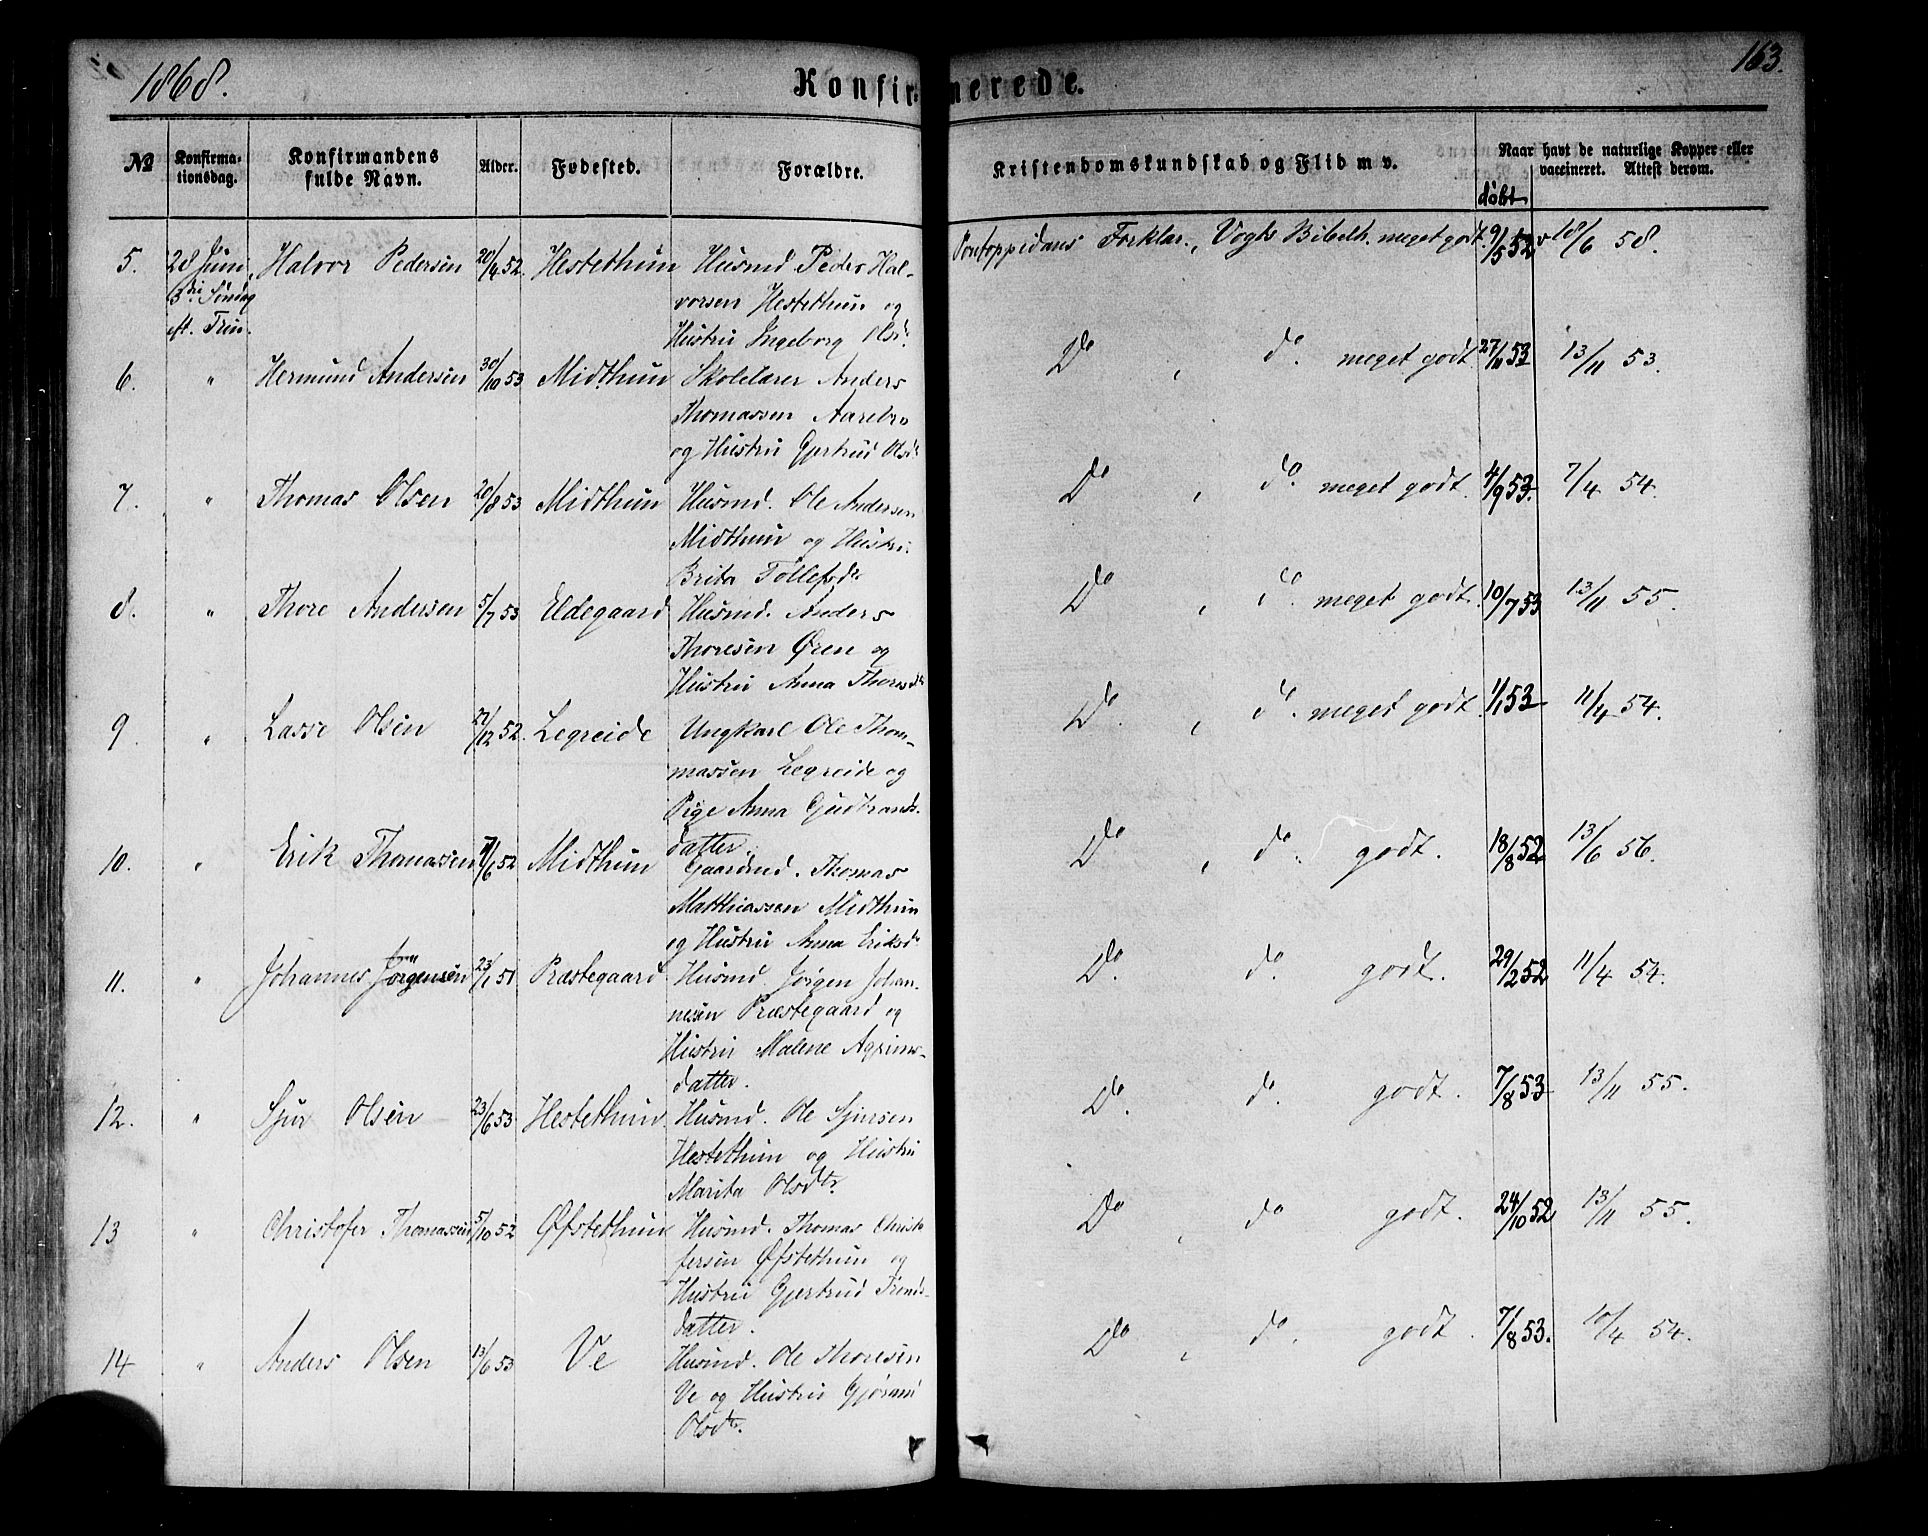 1868.
Konfirmerede.
163.
№
Konfirma-
tionsdag.
Konfirmandens
fulde Navn.
Alder.
Fødested.
Forældre.
Kristendomskundskab og Flid m v.
døbt
Naar havt de naturlige Kopper eller
vaccineret. Attest derom.
5. 28 Juni Halvor Pedersen 20/4 52. Hestethun Husmd Peder Hal- Pontoppidans Forklar., Vogts Bibelh. meget godt. 9/5 52 18/6 58.
3die Søndag vorsen Hestethun og
eft. Trin. Hustru Ingeborg Olsdr
6. " Hermund Andersen 30/10 53 Midthun Skolelærer Anders Do , do. meget godt 27/11 53 13/11 53.
Thomassen Aarebro
og Hustru Gjertrud Olsdr
7. " Thomas Olsen 20/8 53 Midthun Husmd. Ole Andersen Do , do. meget godt. 4/9 53. 7/4 54.
Midthun og Hustru
Brita Tollefsdr
8. " Thore Andersen 5/7 53 Eldegaard Husmd. Anders Do , do. meget godt. 10/7 53 13/11 55.
Thoresen Øren og
Hustru Anna Thoresdr
9. " Lasse Olsen 27/12 52. Legreide Ungkarl Ole Thom- Do. , do. meget godt 1/1 53 11/4 54.
massen Legreide og
Pige Anna Gudbrands-
datter.
10. " Erik Thomassen /6 52 Midthun Gaardmd. Thomas Do , do. godt. 18/8 52 13/6 56.
Matthiassen Midthun
og Hustru Anna Eriksdr
11. " Johannes Jørgensen 23/1 51 Præstegaard Husmd. Jørgen Johan- Do. do. godt. 29/2 52 11/4 54.
nesen Præstegaard og
Hustru Malene
datter.
12. " Sjur Olsen 23/6 53 Hestethun Husmd. Ole Sjursen Do. do. godt. 7/8 53 13/11 55.
Hestethun og Hustru
Marita Olsdtr.
13 " Christofer Thomassen 5/10 52 Øfstethun Husmd. Thomas Christo Do , do godt. 24/10 52 13/11 55.
fersen Øfstethun og
Hustru Gjertrud
datter.
14 " Anders Olsen 13/6 53 Ve Husmd. Ole Thoresen Do , do. godt. 7/8 53. 10/4 54.
Ve og Hustru
Olsdtr.